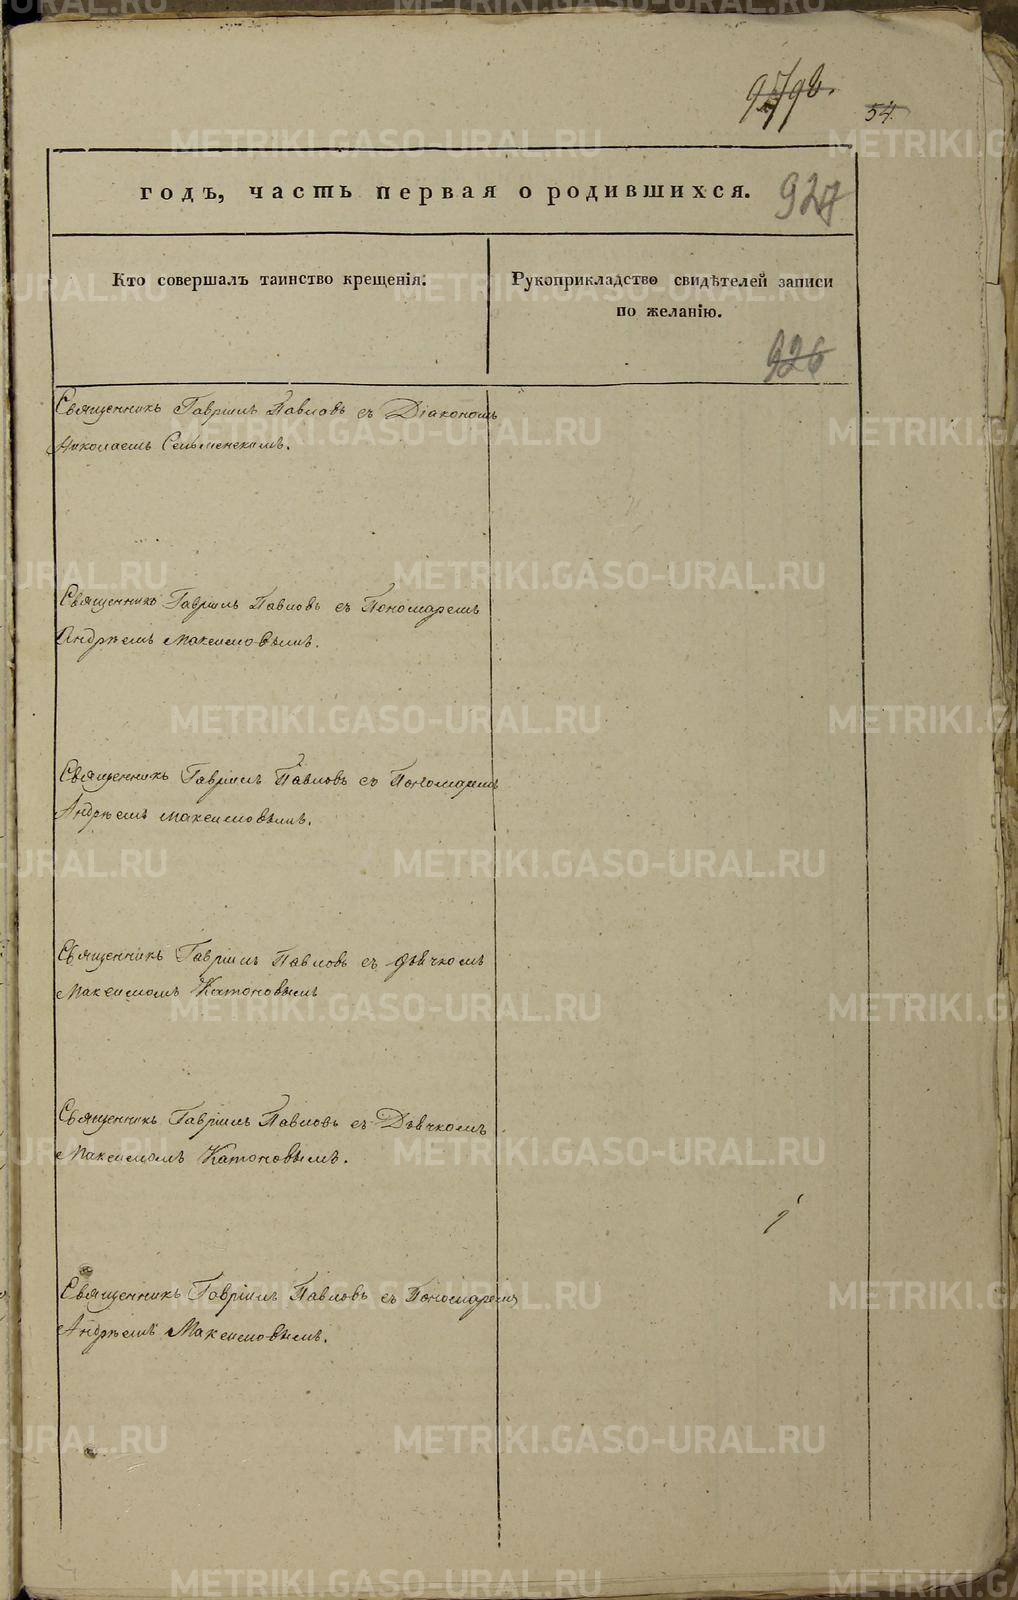 54.
годъ, часть первая о родившихся.
927
Кто совершалъ таинство крещенія.
Рукоприкладство свидѣтелей записи
по желанію.
926
Священникъ Гавріилъ Павловъ съ Діакономъ
Николаемъ
Священникъ Гавріилъ Павловъ съ Пономаремъ
Андрѣемъ Максимовымъ.
Священникъ Гавріилъ Павловъ съ Пономаремъ
Андрѣемъ Максимовымъ.
Священникъ Гавріилъ Павловъ съ Дьячкомъ
Максимомъ Катоновымъ
Священникъ Гавріилъ Павловъ съ Дьячкомъ
Максимомъ Катоновымъ.
Священникъ Гавріилъ Павловъ съ Пономаремъ
Андрѣемъ Максимовымъ.
METRIKI.GASO-URAL.RU